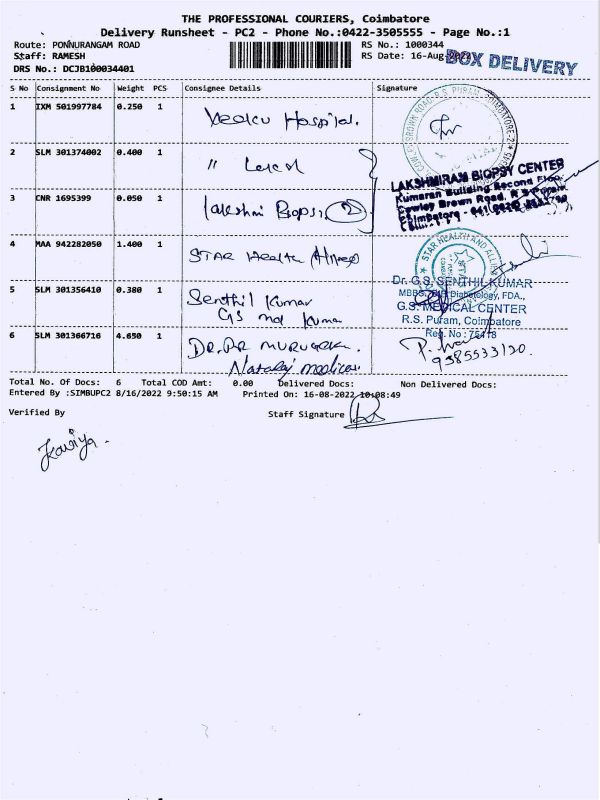 THE PROFESSIONAL COURIERS, Coimbatore
Delivery Runsheet - PC2 - Phone No.:0422-3505555 - Page No.:1
Route: PONNURANGAM ROAD
RS No.: 1000344
Staff: RAMESH
RS Date: 16-Aug-2022
BOX DELIVERY
DRS No.: DCJB100034401
S No Consignment No Weight PCS Consignee Details Signature
1 IXM 501997784 0.250 1 Hospital.
2 SLM 301374002 0.400 1 "
LAKSHMIRAM BIOPSY CENTER
Kumaran Building Second Floor
Cowley Brown Road, R S Puram
3 CNR 1695399 0.050 1 Lakshmi Biopsy (2)
Coimbatore
4 MAA 942282050 1.400 1 STAR Health
STAR HEALTH AND
Dr. G.S. SENTHIL KUMAR
5 SLM 301356410 0.380 1 Senthil Kumar
MBBS., Diabetology, FDA.,
GS md Kuma
G.S. MEDICAL CENTER
R.S. Puram, Coimbatore
Reg. No : 75418
6 SLM 301366716 4.650 1 DR.PR MURUGESA
Nataraj medical
9385533120.
Total No. Of Docs: 6 Total COD Amt: 0.00 Delivered Docs: Non Delivered Docs:
Entered By :SIMBUPC2 8/16/2022 9:50:15 AM Printed On: 16-08-2022 10:08:49
Verified By Staff Signature
Kaviya.